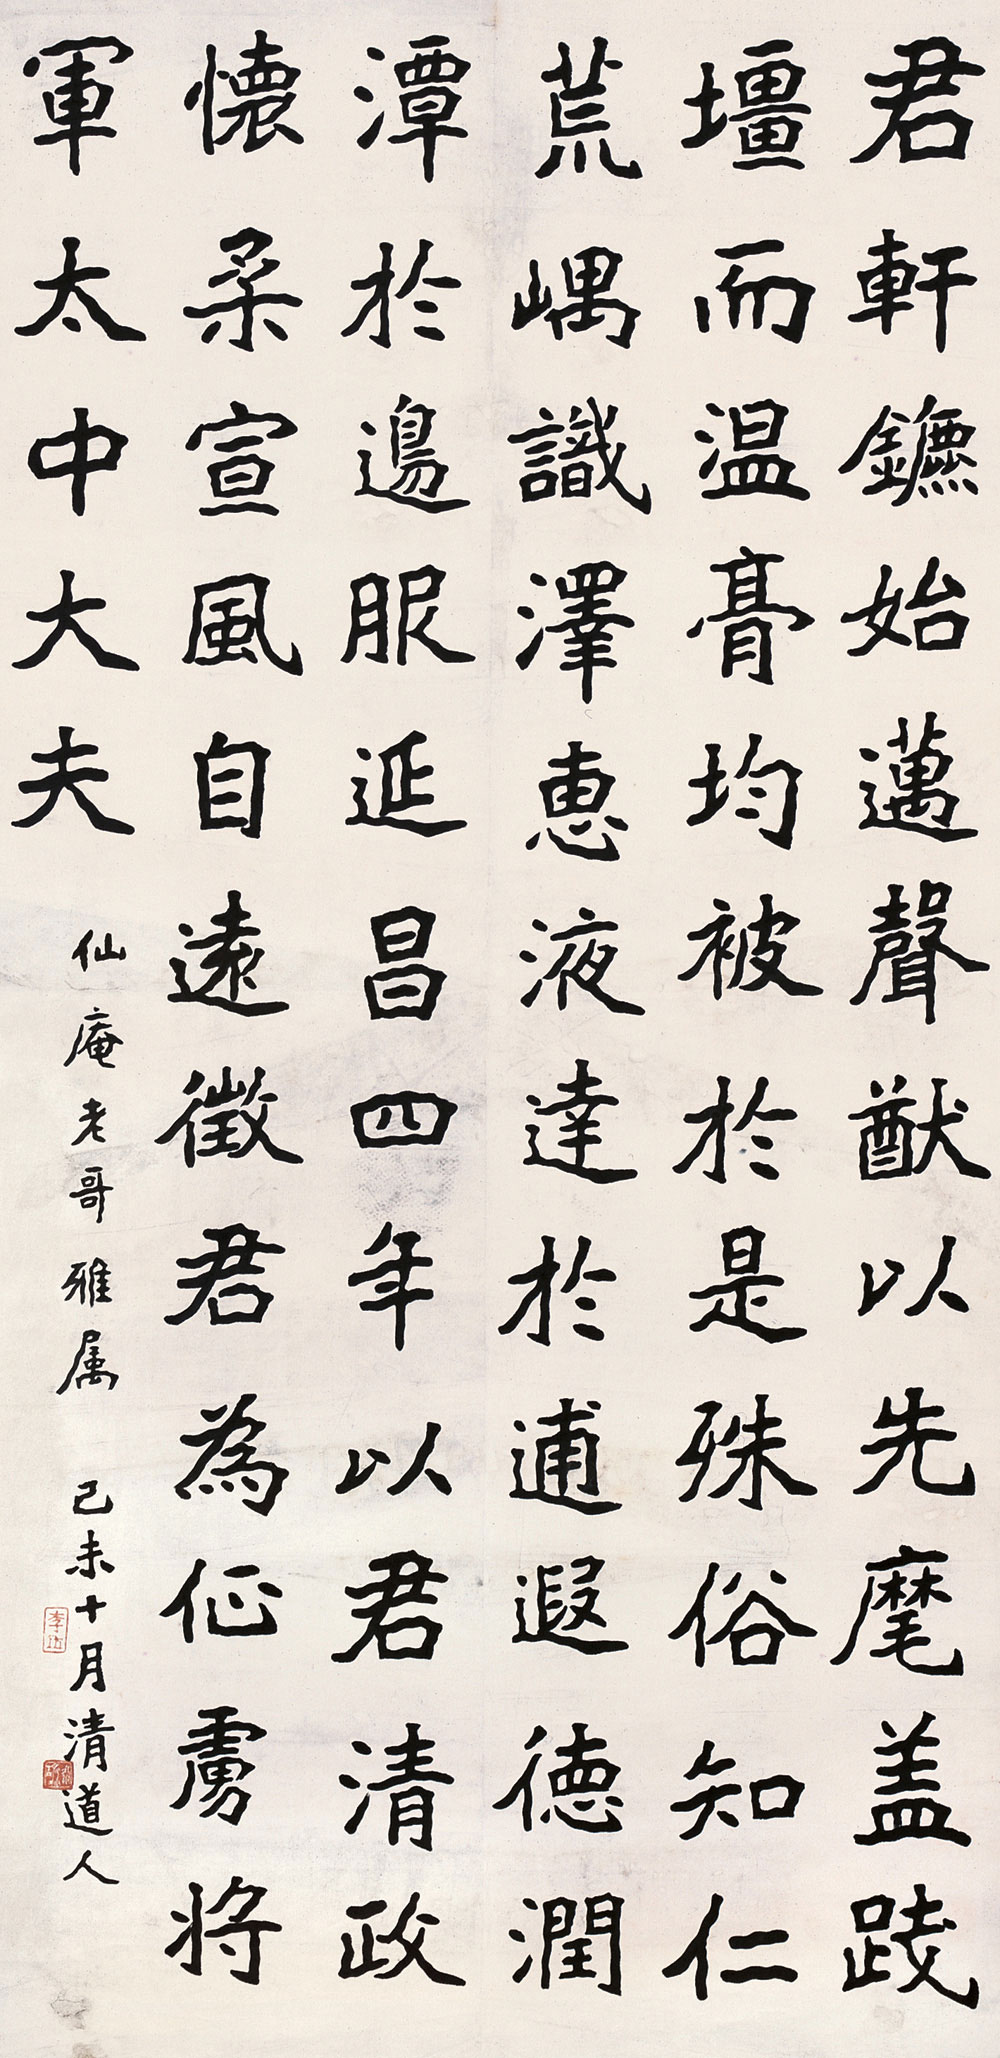 君軒鑣始邁聲猷以先麾盖践
壃而温膏均被於是殊俗知仁
荒嵎識澤惠液達於逋遐德潤
潭於邊服延昌四年以君清政
懷柔宣風自遠徵君為征虜將
軍太中大夫
仙庵老哥雅属 己未十月清道人